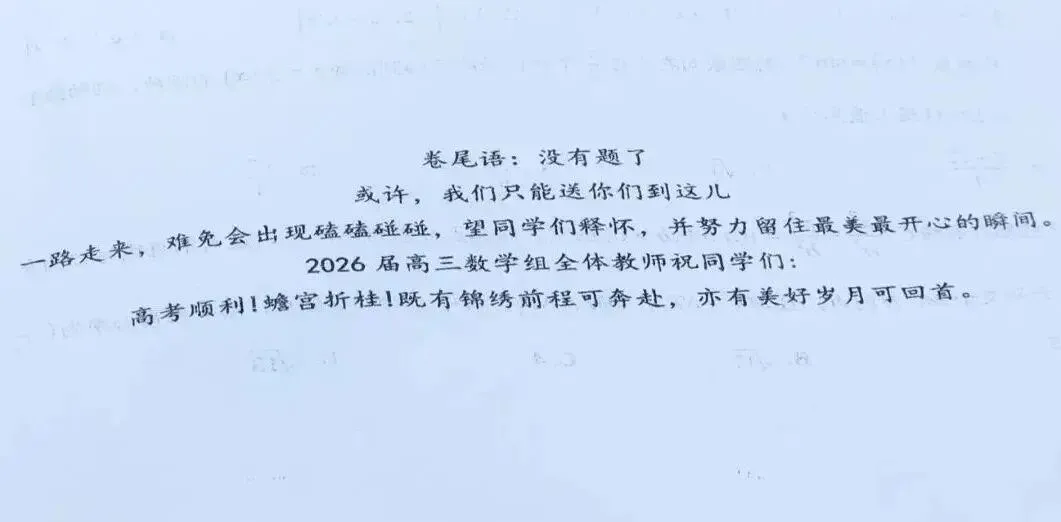 卷尾语：没有题了
或许，我们只能送你们到这儿
一路走来，难免会出现磕磕碰碰，望同学们释怀，并努力留住最美最开心的瞬间。
2026 届高三数学组全体教师祝同学们：
高考顺利！蟾宫折桂！既有锦绣前程可奔赴，亦有美好岁月可回首。